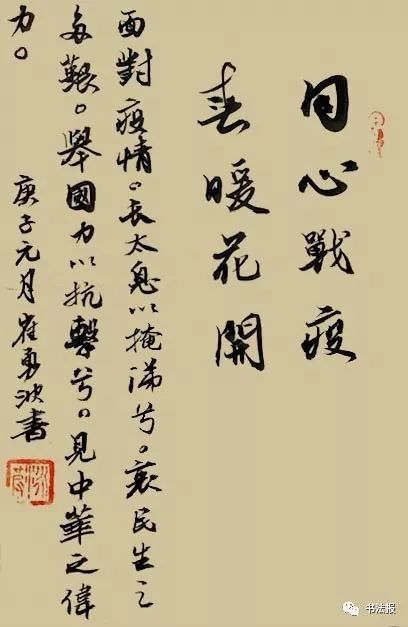 同心戰疫
春暖花開
面對疫情。長太息以掩涕兮。哀民生之
多艱。舉國力以抗擊兮。見中華之偉
力。
庚子元月崔勇波書
书法报